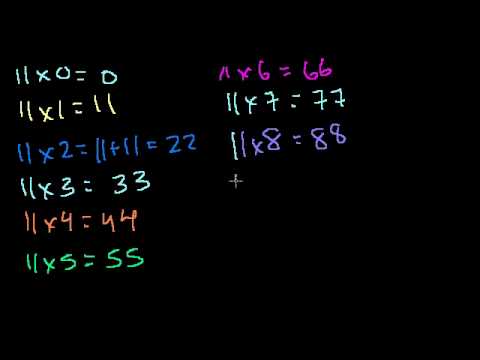 11 x 0 = 0
11 x 1 = 11
11 x 2 = 11+11 = 22
11 x 3 = 33
11 x 4 = 44
11 x 5 = 55
11 x 6 = 66
11 x 7 = 77
11 x 8 = 88